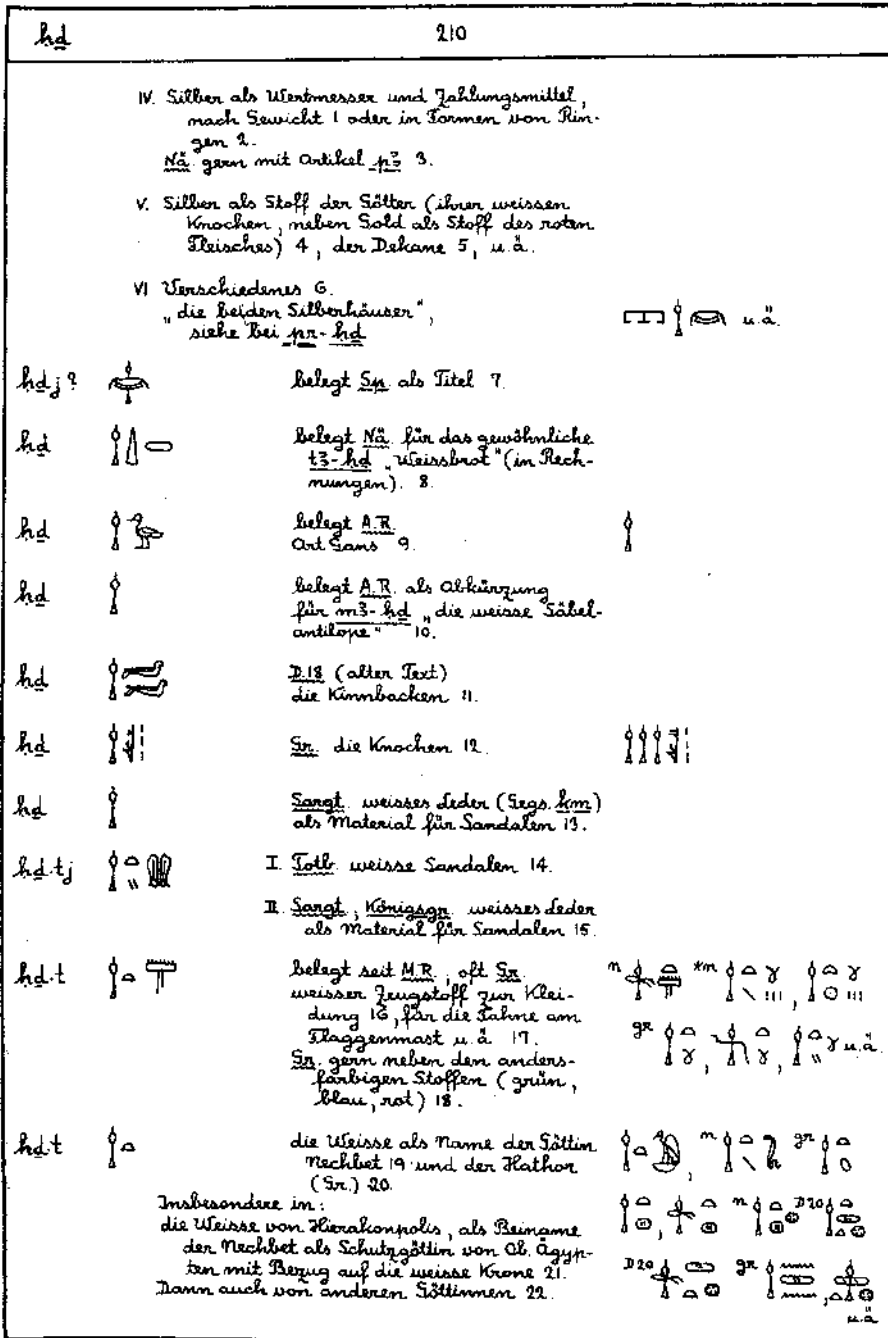 ḥḏ 210
IV. Silber als Wertmesser und Zahlungsmittel,
nach Gewicht 1 oder in Formen von Rin-
gen 2.
Nä. gern mit Artikel pꜣ 3.
V. Silber als Stoff der Götter (ihrer weissen
Knochen, neben Gold als Stoff des roten
Fleisches) 4, der Dekane 5, u.ä.
VI Verschiedenes 6.
„die beiden Silberhäuser", u.ä.
siehe bei pr-ḥḏ
ḥḏj? belegt Sp. als Titel 7.
ḥḏ belegt Nä. für das gewöhnliche
tꜣ-ḥḏ „Weissbrot" (in Rech-
nungen). 8.
ḥḏ belegt A.R.
Art Gans 9.
ḥḏ belegt A.R. als Abkürzung
für mꜣ-ḥḏ „die weisse Säbel-
antilope" 10.
ḥḏ D.18 (alter Text)
die Kinnbacken 11.
ḥḏ Gr. die Knochen 12.
ḥḏ Sargt. weisses Leder (Gegs. km)
als Material für Sandalen 13.
ḥḏ.tj I. Totb. weisse Sandalen 14.
II. Sargt., Königsgr. weisses Leder
als Material für Sandalen 15.
ḥḏ.t belegt seit M.R., oft Gr.
weisser Zeugstoff zur Klei-
dung 16, für die Fahne am
Flaggenmast u.ä. 17.
Gr. gern neben den anders- u.ä.
farbigen Stoffen (grün,
blau, rot) 18.
ḥḏ.t die Weisse als Name der Göttin
Nechbet 19 und der Hathor
(Gr.) 20.
Insbesondere in:
die Weisse von Hierakonpolis, als Beiname
der Nechbet als Schutzgöttin von Ob. Ägyp-
ten mit Bezug auf die weisse Krone 21.
Dann auch von anderen Göttinnen 22.
u.ä